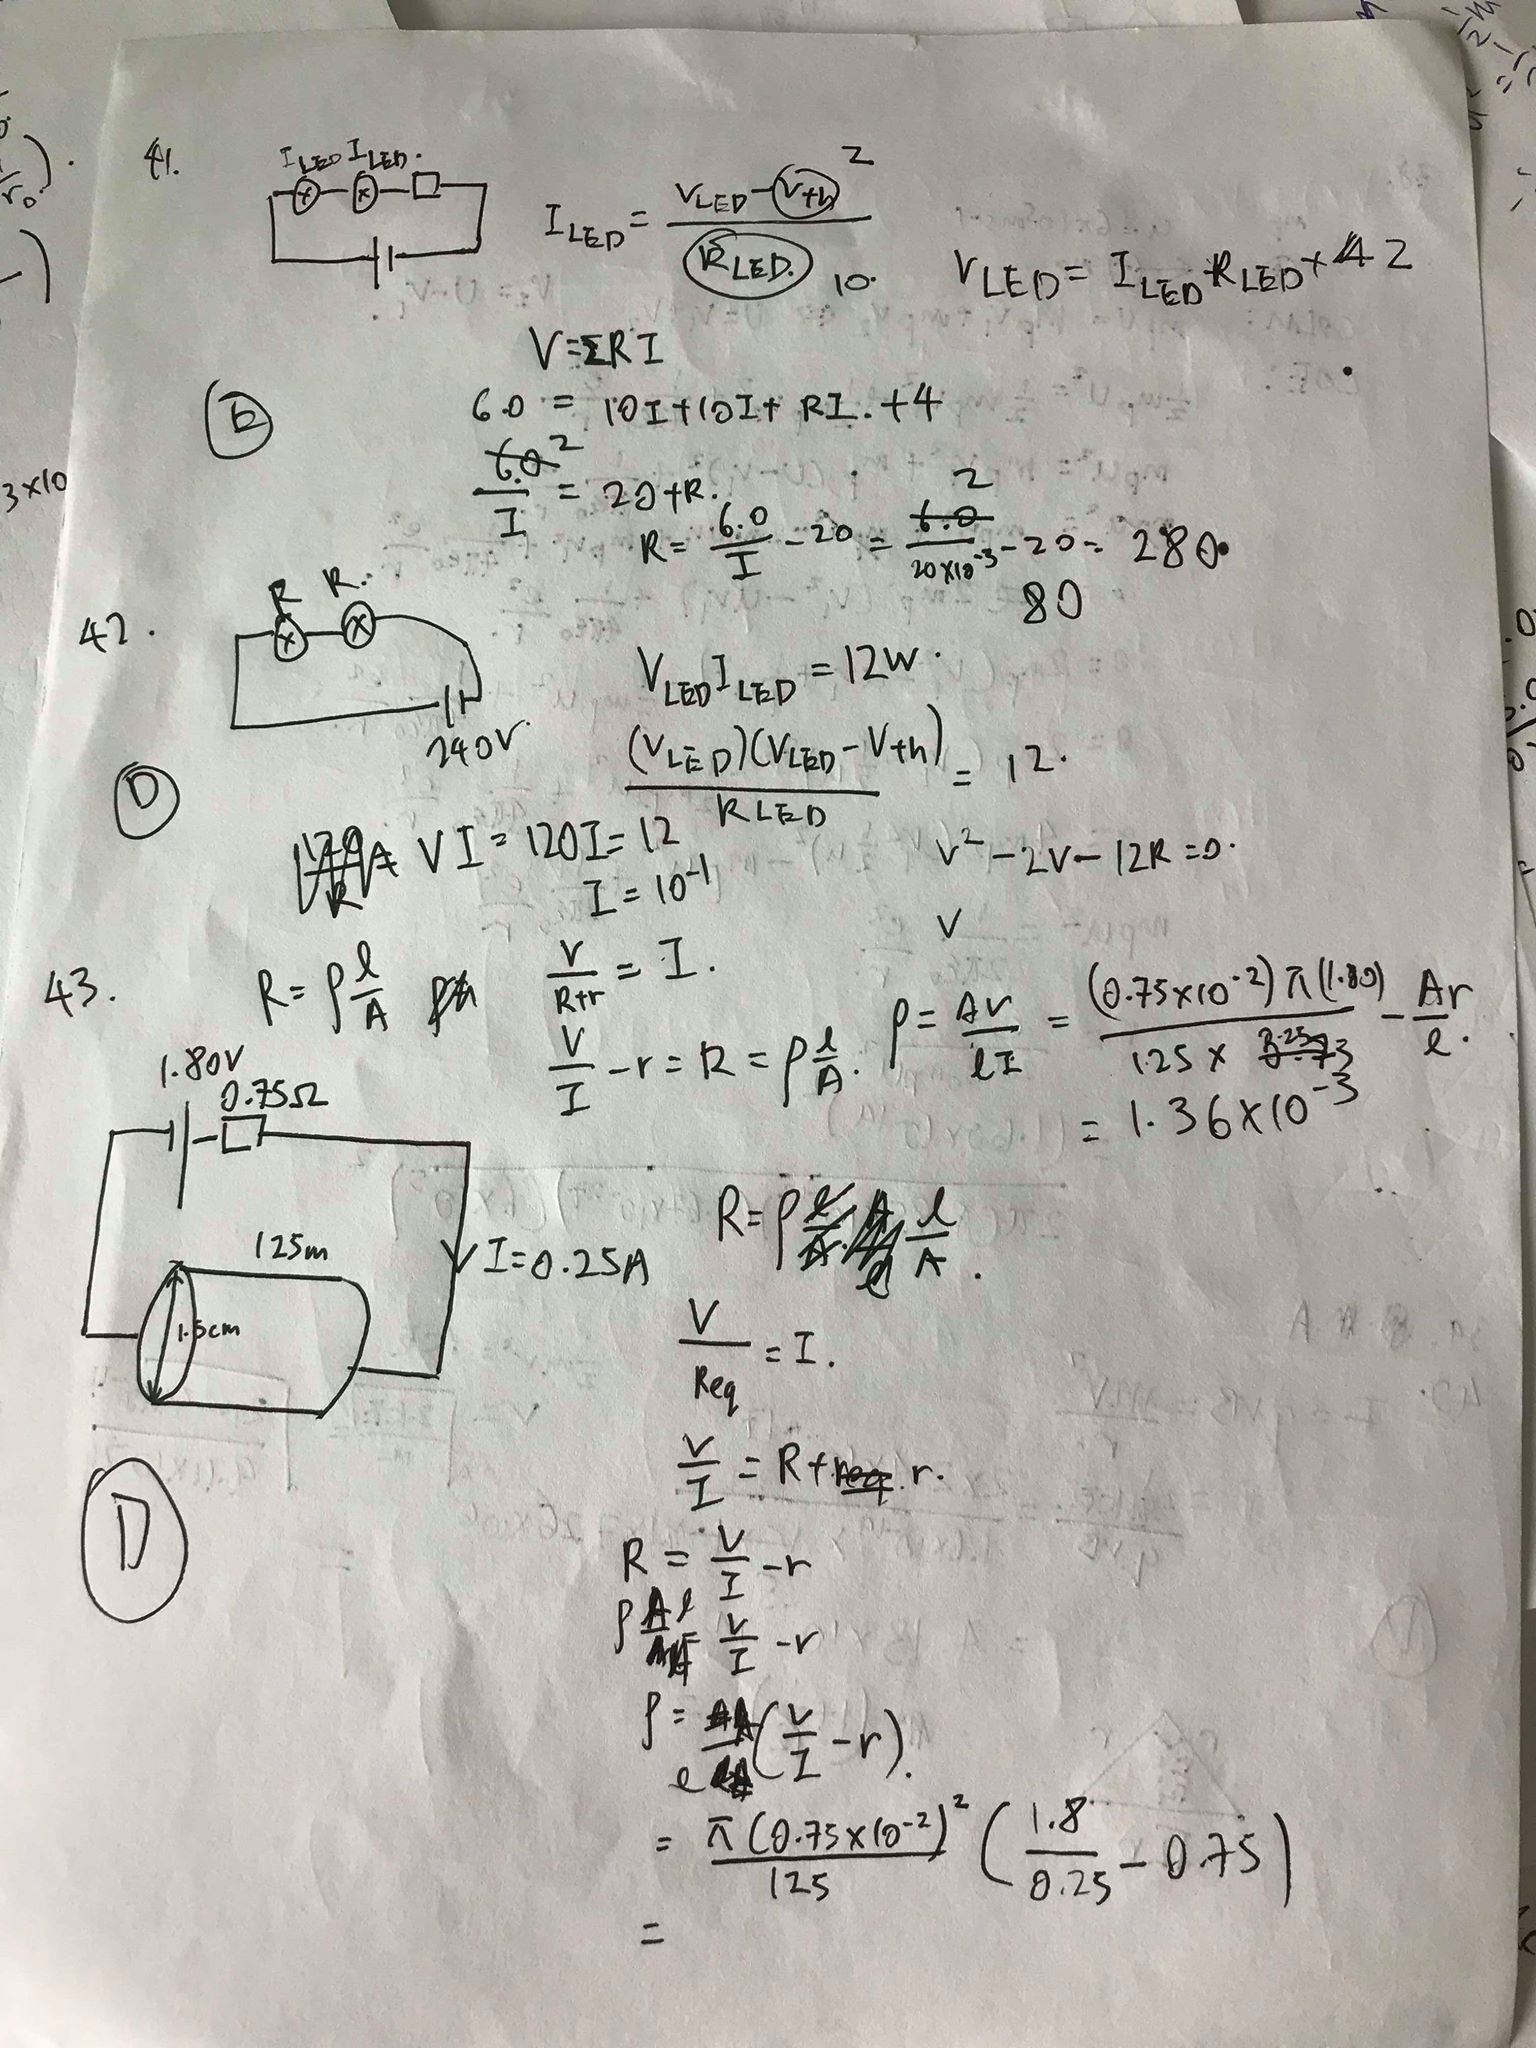 41.
I_LED I_LED.
I_LED = (V_LED - V_th) / R_LED.
2
10.
V_LED = I_LED R_LED + 2
V = ΣRI
E
6.0 = 10I + 10I + RI. + 4
2
6.0 / I = 20 + R.
2
R = 6.0 / I - 20 = 6.0 / 20×10^-3 - 20 = 280.
80
42.
R R.
240V.
V_LED I_LED = 12W.
(V_LED)(V_LED - V_th) / R_LED = 12.
D
VI = 120I = 12
I = 10^-1
V^2 - 2V - 12R = 0.
V
43.
R = ρ l/A
V/(R+r) = I.
V/I - r = R = ρ l/A.
ρ = AV/lI = (0.75×10^-2)π(1.80) / 1.25 × - Ar/l.
= 1.36×10^-3
1.80V
0.75Ω
125m
1.5cm
I = 0.25A
R = ρ l/A.
V/Req = I.
V/I = R + r.
R = V/I - r
ρ l = V/I - r
ρ = (V/I - r).
= π(0.75×10^-2)^2 / 125 (1.8/0.25 - 0.75)
=
D